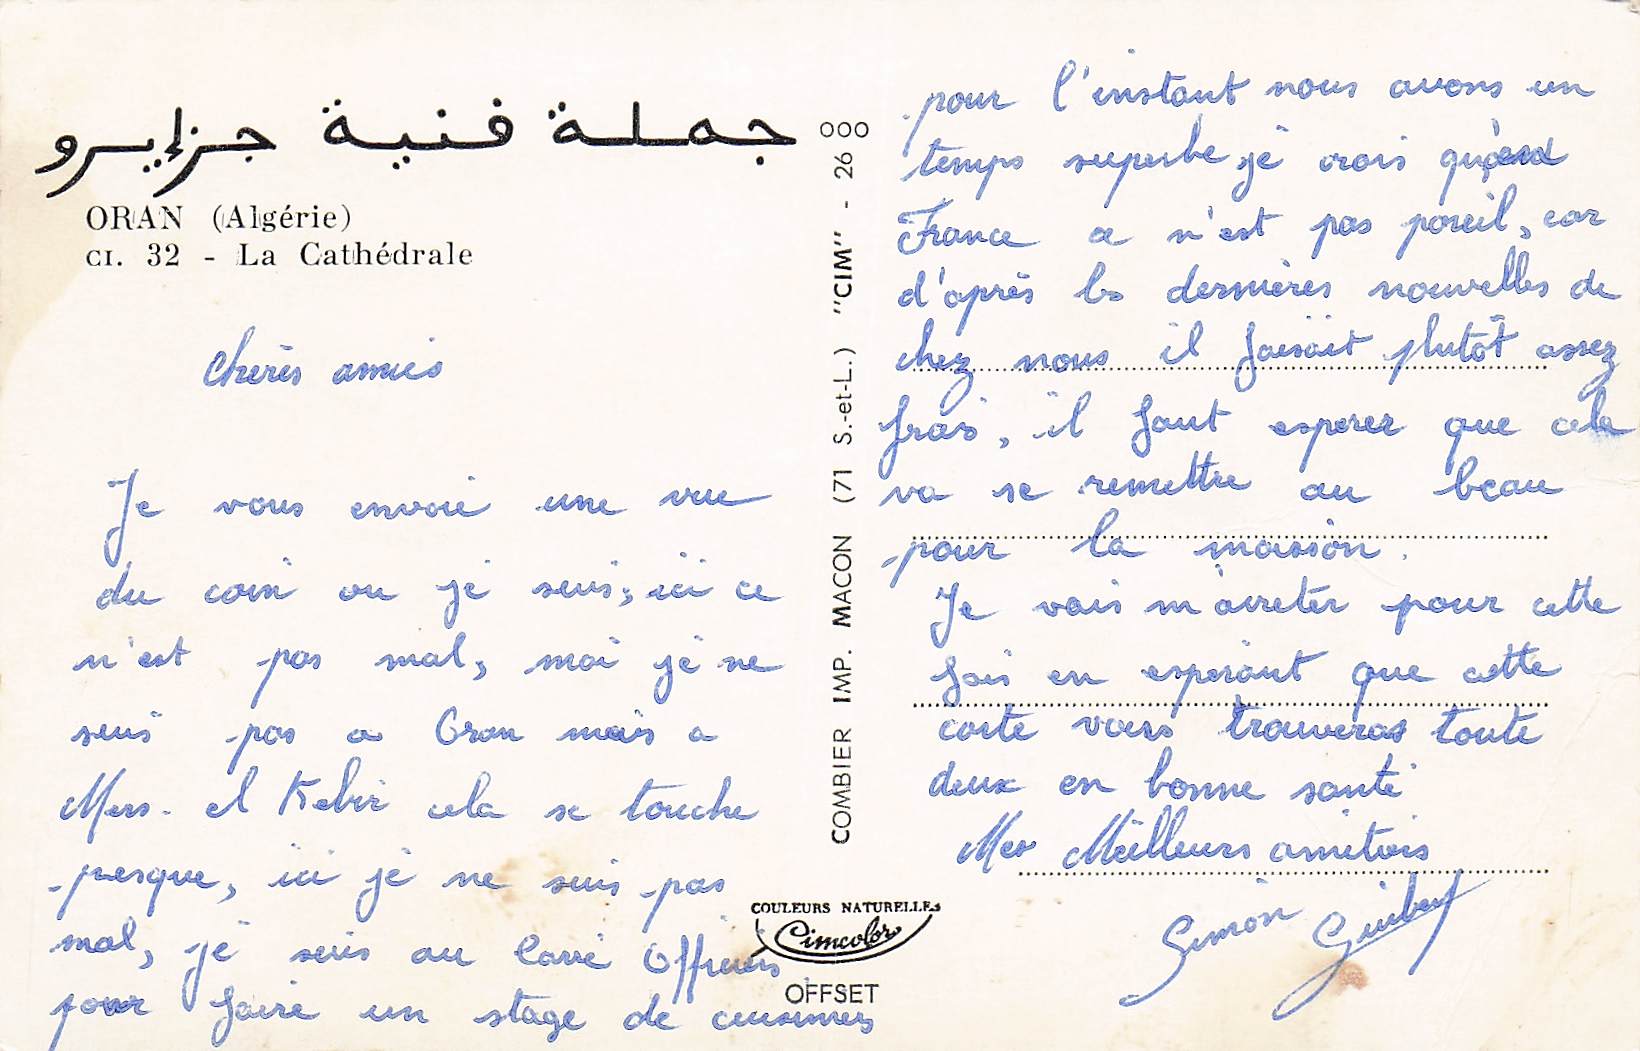 جملة فنية جزايرو
ORAN (Algérie)
CI. 32 - La Cathédrale
Chères amies
Je vous envoie une vue
du coin ou je suis, ici ce
n'est pas mal, moi je ne
suis pas a Oran mais a
Mers-el Kebir cela se touche
presque, ici je ne suis pas
mal, je suis au Carré Officiers
pour faire un stage de cuisiniers
COMBIER IMP. MACON (71 S.-et-L.) "CIM" - 26 000
COULEURS NATURELLES
Cimcolor
OFFSET
pour l'instant nous avons un
temps superbe, je crois qu'en
France ce n'est pas pareil, car
d'après les dernières nouvelles de
chez nous il faisait plutôt assez
frais, il faut esperer que cela
va se remettre au beau
pour la moisson.
Je vais m'arreter pour cette
fois en esperant que cette
carte vous trouveras toute
deux en bonne santé
Mes Meilleurs amitois
Simon Guibert